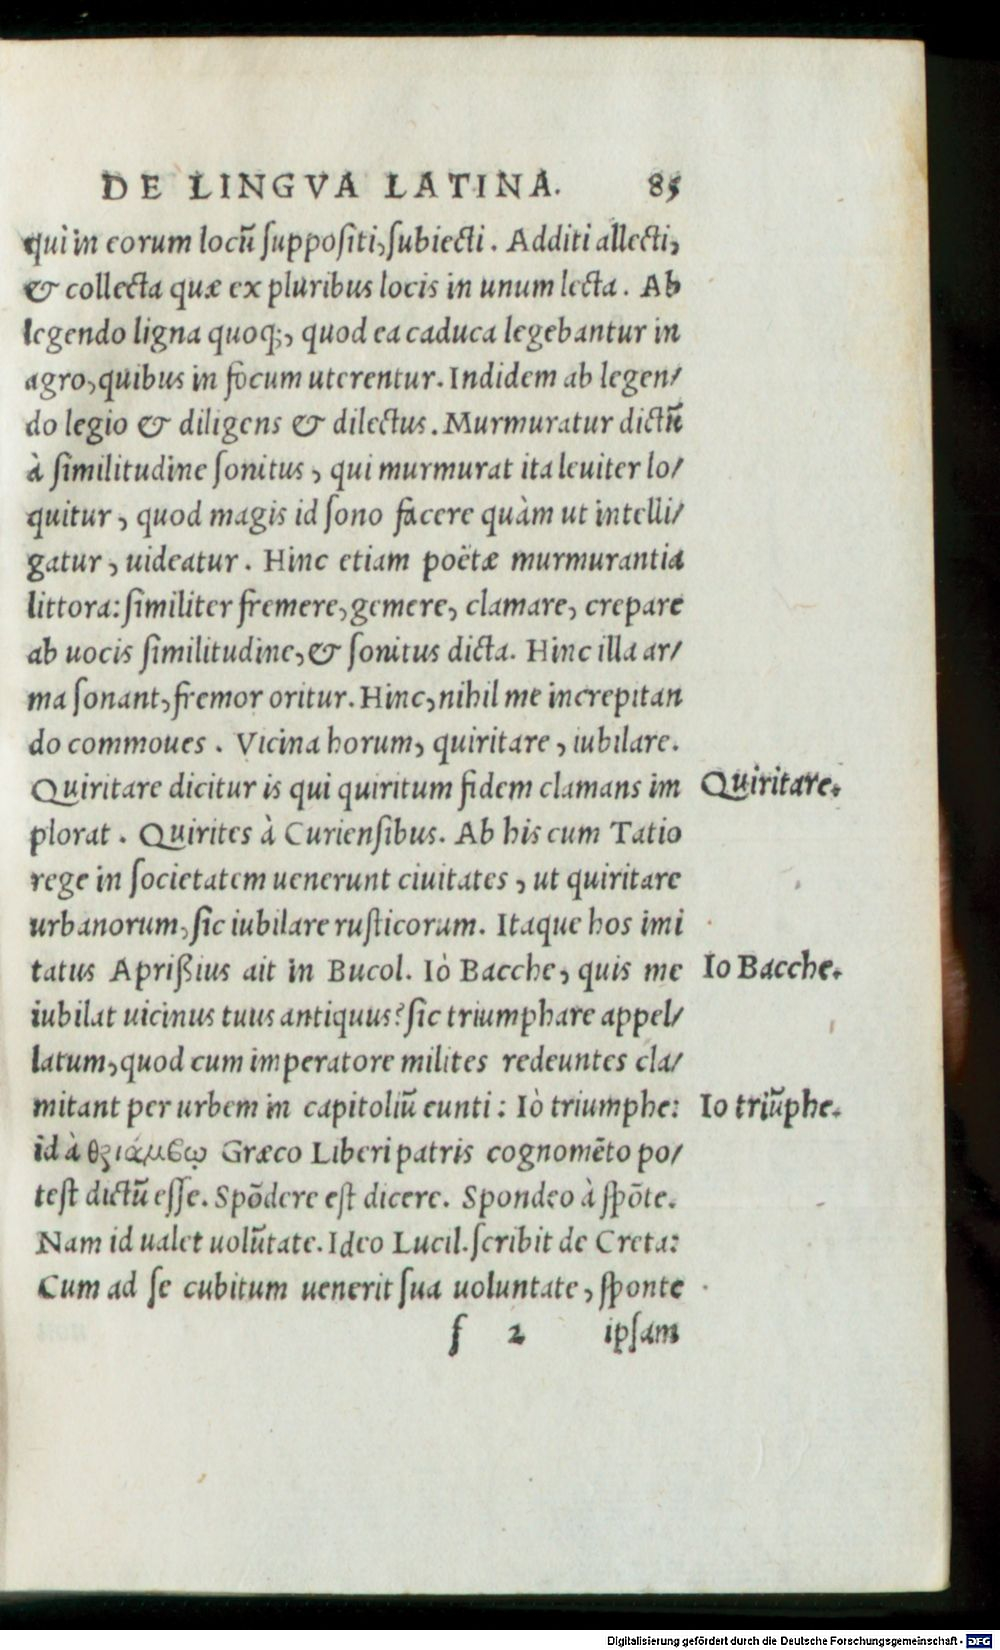 DE LINGVA LATINA. 85
qui in eorum locũ suppositi, subiecti. Additi allecti,
& collecta quæ ex pluribus locis in unum lecta. Ab
legendo ligna quoq;, quod ea caduca legebantur in
agro, quibus in focum uterentur. Indidem ab legen/
do legio & diligens & dilectus. Murmuratur dictũ
à similitudine sonitus, qui murmurat ita leuiter lo/
quitur, quod magis id sono facere quàm ut intelli/
gatur, uideatur. Hinc etiam poëtæ murmurantia
littora: similiter fremere, gemere, clamare, crepare
ab uocis similitudine, & sonitus dicta. Hinc illa ar/
ma sonant, fremor oritur. Hinc, nihil me increpitan
do commoues. Vicina horum, quiritare, iubilare.
Quiritare dicitur is qui quiritum fidem clamans im
Quiritare.
plorat. Quirites à Curiensibus. Ab his cum Tatio
rege in societatem uenerunt ciuitates, ut quiritare
urbanorum, sic iubilare rusticorum. Itaque hos imi
tatus Aprißius ait in Bucol. Iò Bacche, quis me
Io Bacche.
iubilat uicinus tuus antiquus? sic triumphare appel/
latum, quod cum imperatore milites redeuntes cla/
mitant per urbem in capitoliũ eunti: Iò triumphe:
Io triũphe.
id à θριάμβῳ Græco Liberi patris cognomẽto po/
test dictũ esse. Spõdere est dicere. Spondeo à spõte.
Nam id ualet uolũtate. Ideo Lucil. scribit de Creta:
Cum ad se cubitum uenerit sua uoluntate, sponte
f 2 ipsam
Digitalisierung gefördert durch die Deutsche Forschungsgemeinschaft - DFG